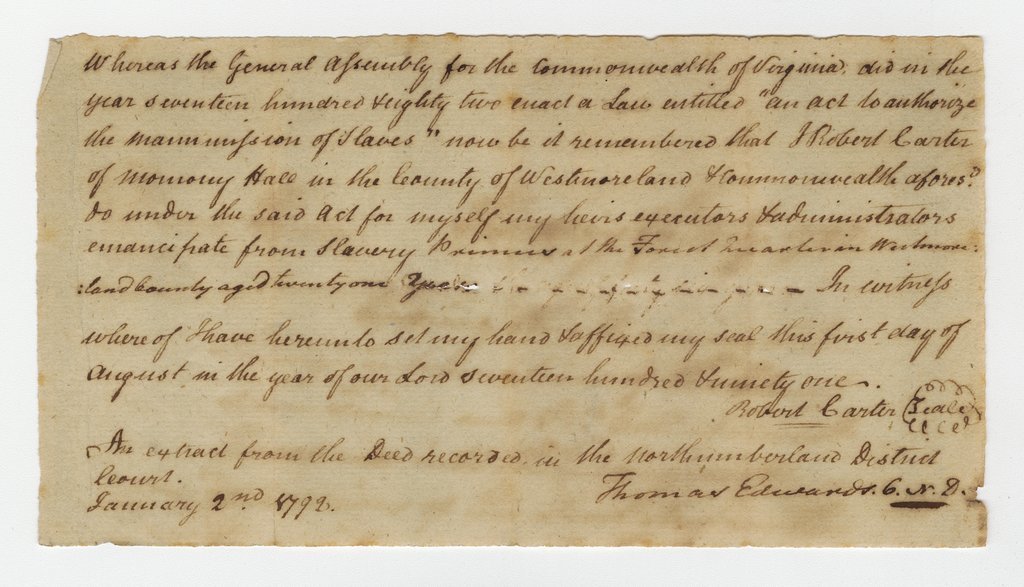 Whereas the General Assembly for the Commonwealth of Virginia, did in the
year seventeen hundred & eighty two enact a Law entitled "an act to authorize
the manumission of Slaves" now be it remembered that I Robert Carter
of Nomony Hall in the County of Westmoreland & Commonwealth afores.d
do under the said Act for myself my heirs executors & administrators
emancipate from Slavery Primus at the Forest Quarter in Westmore:
:land County aged twenty one Years In witness
where of I have hereunto set my hand & affixed my seal this first day of
August in the year of our Lord seventeen hundred & ninety one.
Robert Carter (Seal)
An extract from the Deed recorded in the Northumberland District
Court.
Thomas Edwards. C. N. D.
January 2nd 1792.